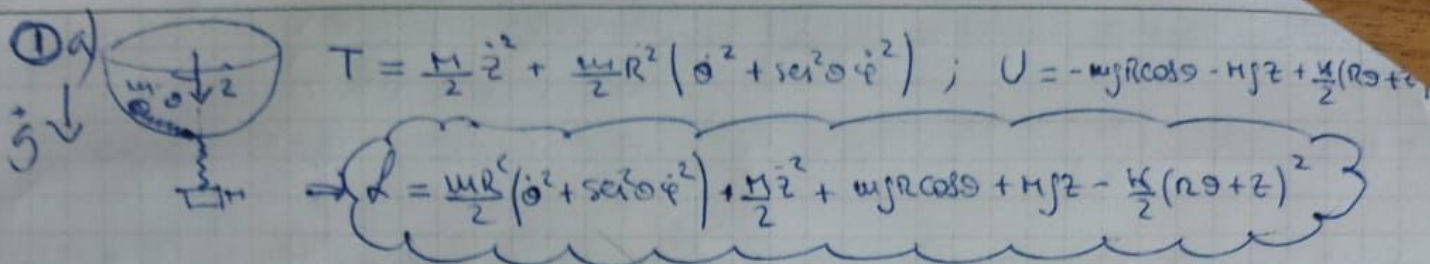 ① a) T = M/2 ż² + m/2 R² (θ̇² + sin²θ φ̇²) ; U = -mgRcosθ - Mgz + k/2 (Rθ+z)
m θ z
g
M
⇒ L = mR²/2 (θ̇² + sin²θ φ̇²) + M/2 ż² + mgRcosθ + Mgz - k/2 (Rθ+z)²